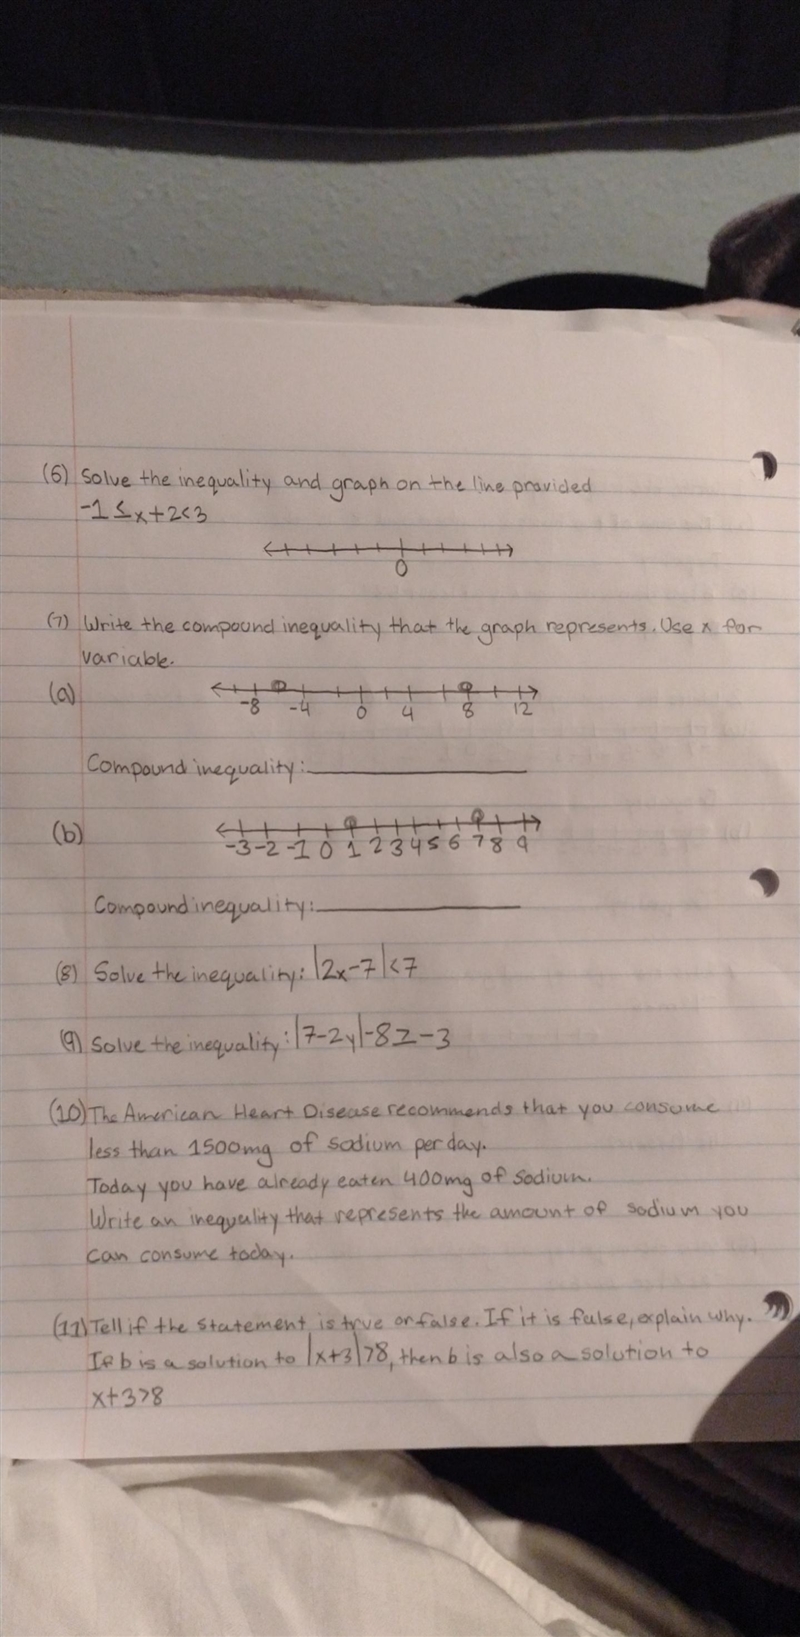 (6) Solve the inequality and graph on the line provided
-1≤x+2<3
0
(7) Write the compound inequality that the graph represents. Use x for
variable.
(a)
-8 -4 0 4 8 12
Compound inequality:
(b)
-3 -2 -1 0 1 2 3 4 5 6 7 8 9
Compound inequality:
(8) Solve the inequality: |2x-7|<7
(9) Solve the inequality: |7-2y|-8≥-3
(10) The American Heart Disease recommends that you consume
less than 1500mg of sodium per day.
Today you have already eaten 400mg of sodium.
Write an inequality that represents the amount of sodium you
can consume today.
(11) Tell if the statement is true or false. If it is false, explain why.
If b is a solution to |x+3|>8, then b is also a solution to
x+3>8